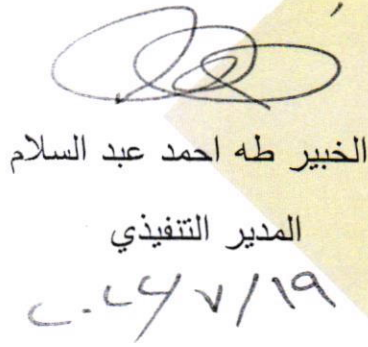 الخبير طه احمد عبد السلام
المدير التنفيذي
٢٠٢٤/٧/١٩